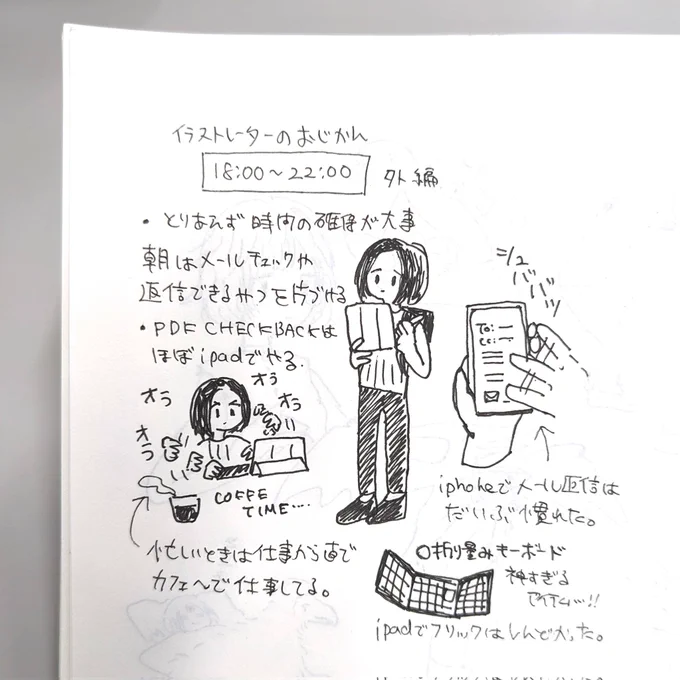 イラストレーターのおじかん
18:00～22:00 外編
・とりあえず時間の確保が大事
朝はメールチェックや
返信できるやつを片づける
・PDF CHECKBACKは
ほぼipadでやる.
オラ
オラ
オラ
オラ
COFFE
TIME....
忙しいときは仕事から直で
カフェへで仕事してる。
シュ
ババババッ
To:
CC:
iphoneでメール返信は
だいぶ慣れた。
○折り畳みキーボード
神すぎる
アイテム…!!
ipadでフリックはしんどかった。